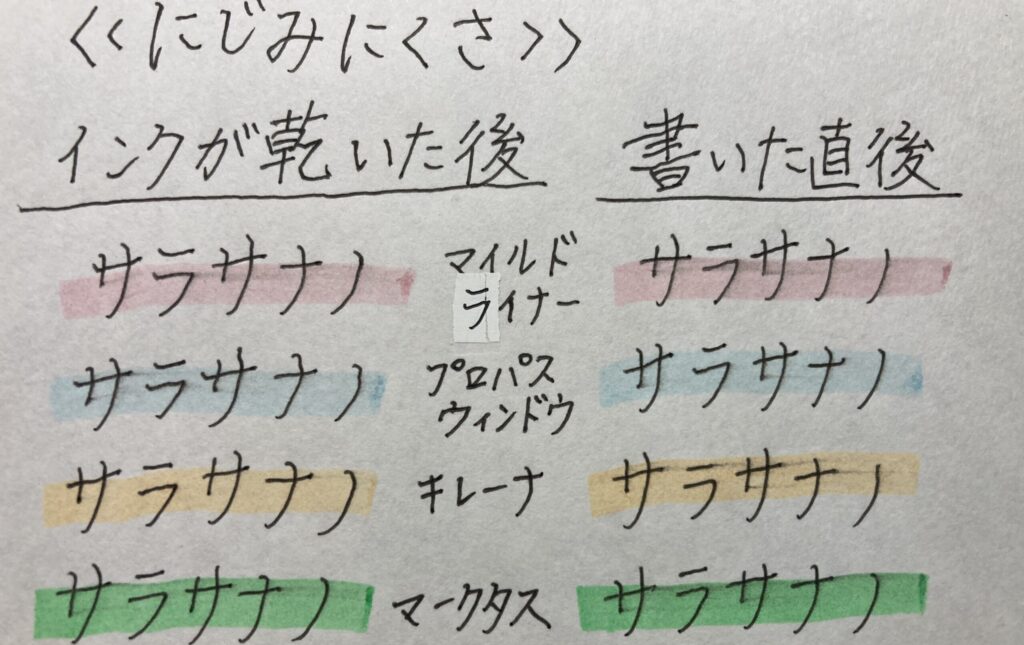 <<にじみにくさ>>
インクが乾いた後 書いた直後
サラサナノ マイルドライナー サラサナノ
サラサナノ プロパスウィンドウ サラサナノ
サラサナノ キレーナ サラサナノ
サラサナノ マークタス サラサナノ